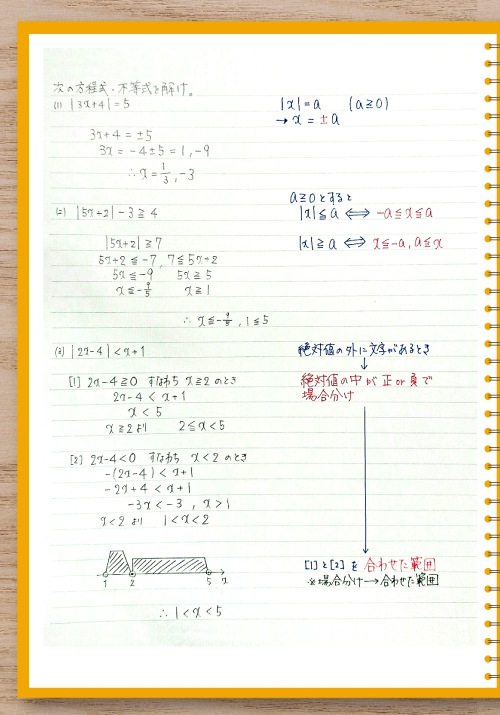 次の方程式・不等式を解け。
(1) |3x+4|=5
3x+4 = ±5
3x = -4±5 = 1, -9
∴ x = 1/3, -3
|x|=a (a≧0)
→ x = ±a
(2) |5x+2|-3≧4
|5x+2|≧7
5x+2≦-7, 7≦5x+2
5x≦-9 5x≧5
x≦-9/5 x≧1
∴ x≦-9/5, 1≦5
a≧0とすると
|x|≦a ⟺ -a≦x≦a
|x|≧a ⟺ x≦-a, a≦x
(3) |2x-4|<x+1
[1] 2x-4≧0 すなわち x≧2 のとき
2x-4 < x+1
x < 5
x≧2より 2≦x<5
[2] 2x-4<0 すなわち x<2 のとき
-(2x-4) < x+1
-2x+4 < x+1
-3x<-3, x>1
x<2 より 1<x<2
1 2 5 x
∴ 1<x<5
絶対値の外に文字があるとき
↓
絶対値の中が正or負で
場合分け
↓
[1]と[2]を合わせた範囲
※場合分け→合わせた範囲